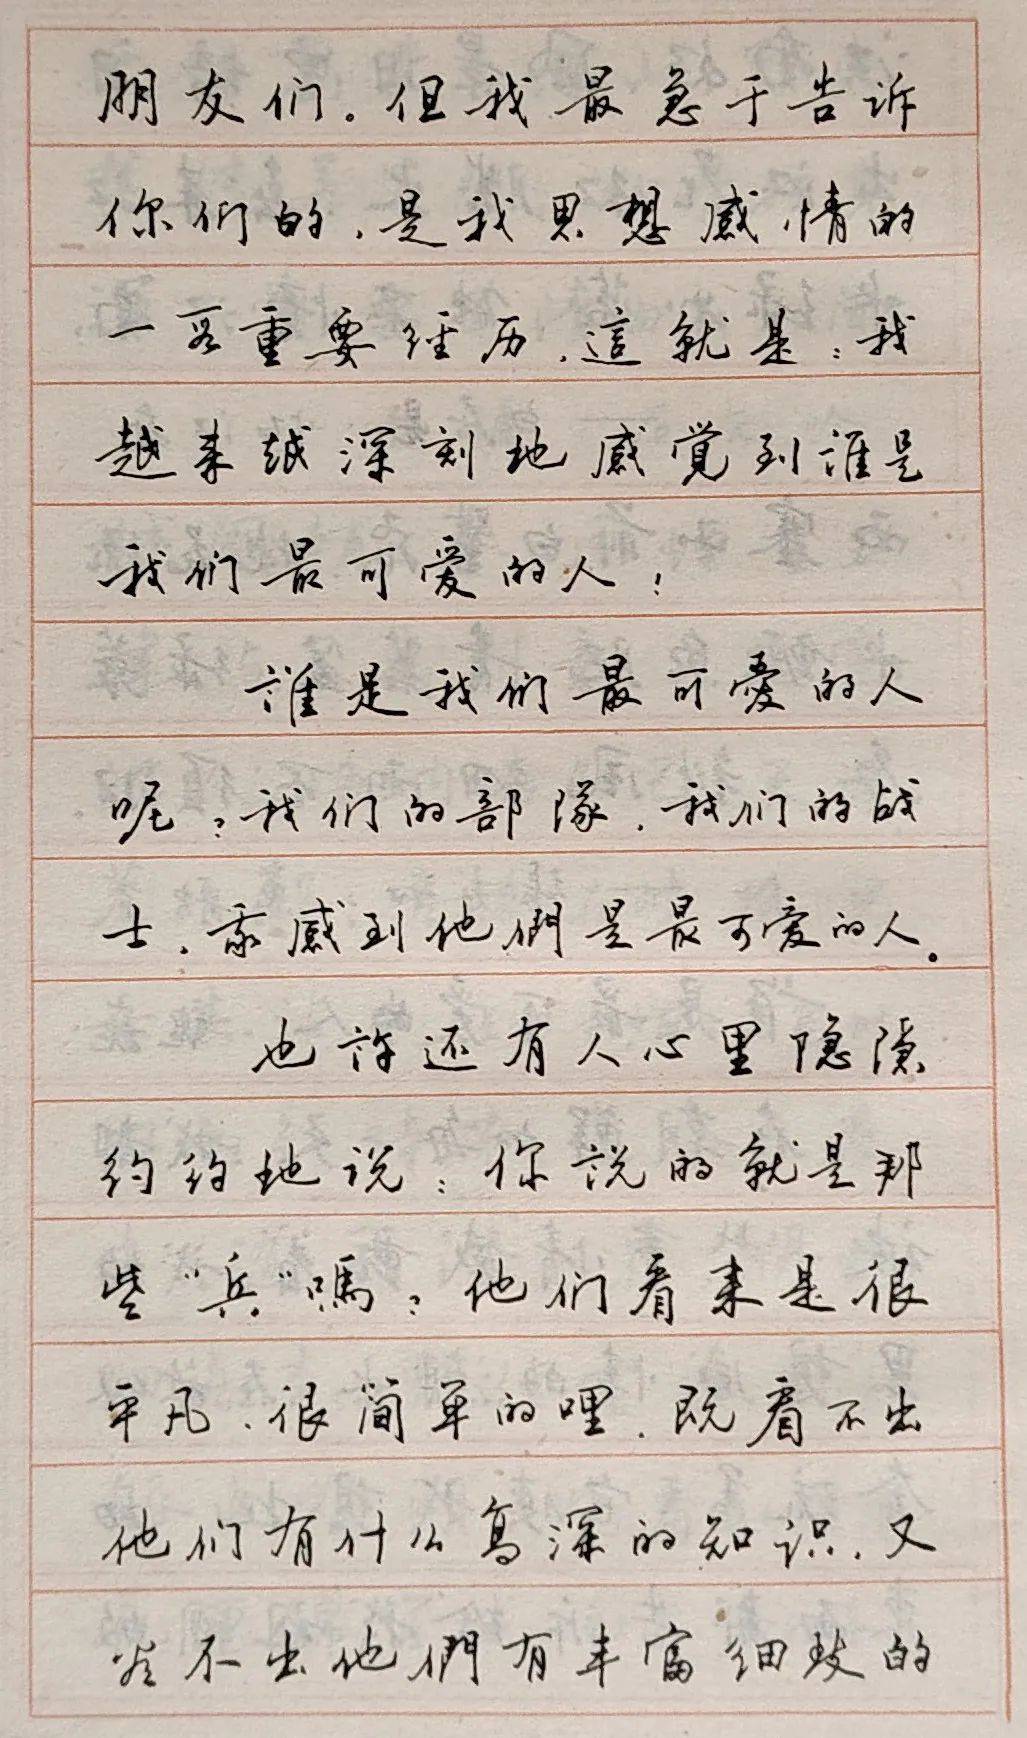 朋友们。但我最急于告诉
你们的，是我思想感情的
一段重要经历，這就是：我
越来越深刻地感觉到誰是
我们最可爱的人！
誰是我们最可愛的人
呢？我们的部隊，我们的战
士，我感到他們是最可爱的人。
也許还有人心里隐隱
约约地说：你說的就是那
些“兵”嗎？他们看来是很
平凡、很简单的哩，既看不出
他们有什么高深的知识，又
看不出他們有丰富细致的